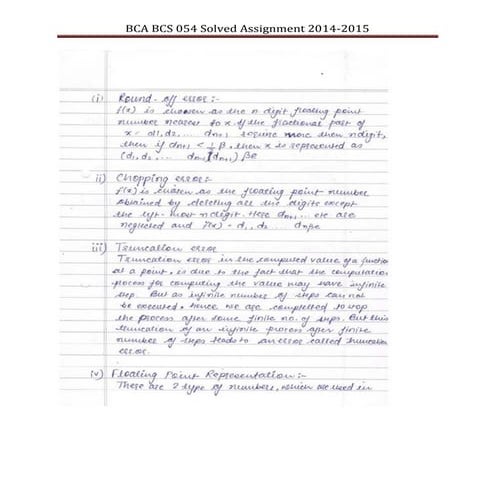 BCA BCS 054 Solved Assignment 2014-2015
(i) Round-off error:-
f(x) is chosen as the n digit floating point
number nearest to x. If the fractional part of
x = d1,d2... dn+1 require more then n digit,
then if dn+1 < 1/2 β, then x is represented as
(d1,d2,...
ii) Chopping error:-
f(x) is chosen as the floating point number
obtained by deleting all the digits except
the left-most n digit. Here dn+1... etc are
neglected and f(x) = d1, d2 ....
iii) Truncation error
Truncation error in the computed value of a function
at a point, is due to the fact that the computation
process for computing the value may have infinite
step. But as infinite number of steps can not
be executed, hence we are to stop
the process after some finite no. of steps. But this
truncation of an infinite process after finite
number of steps leads to an error called truncation
error.
iv) Floating Point Representation:-
There are 2 type of numbers, which are used in